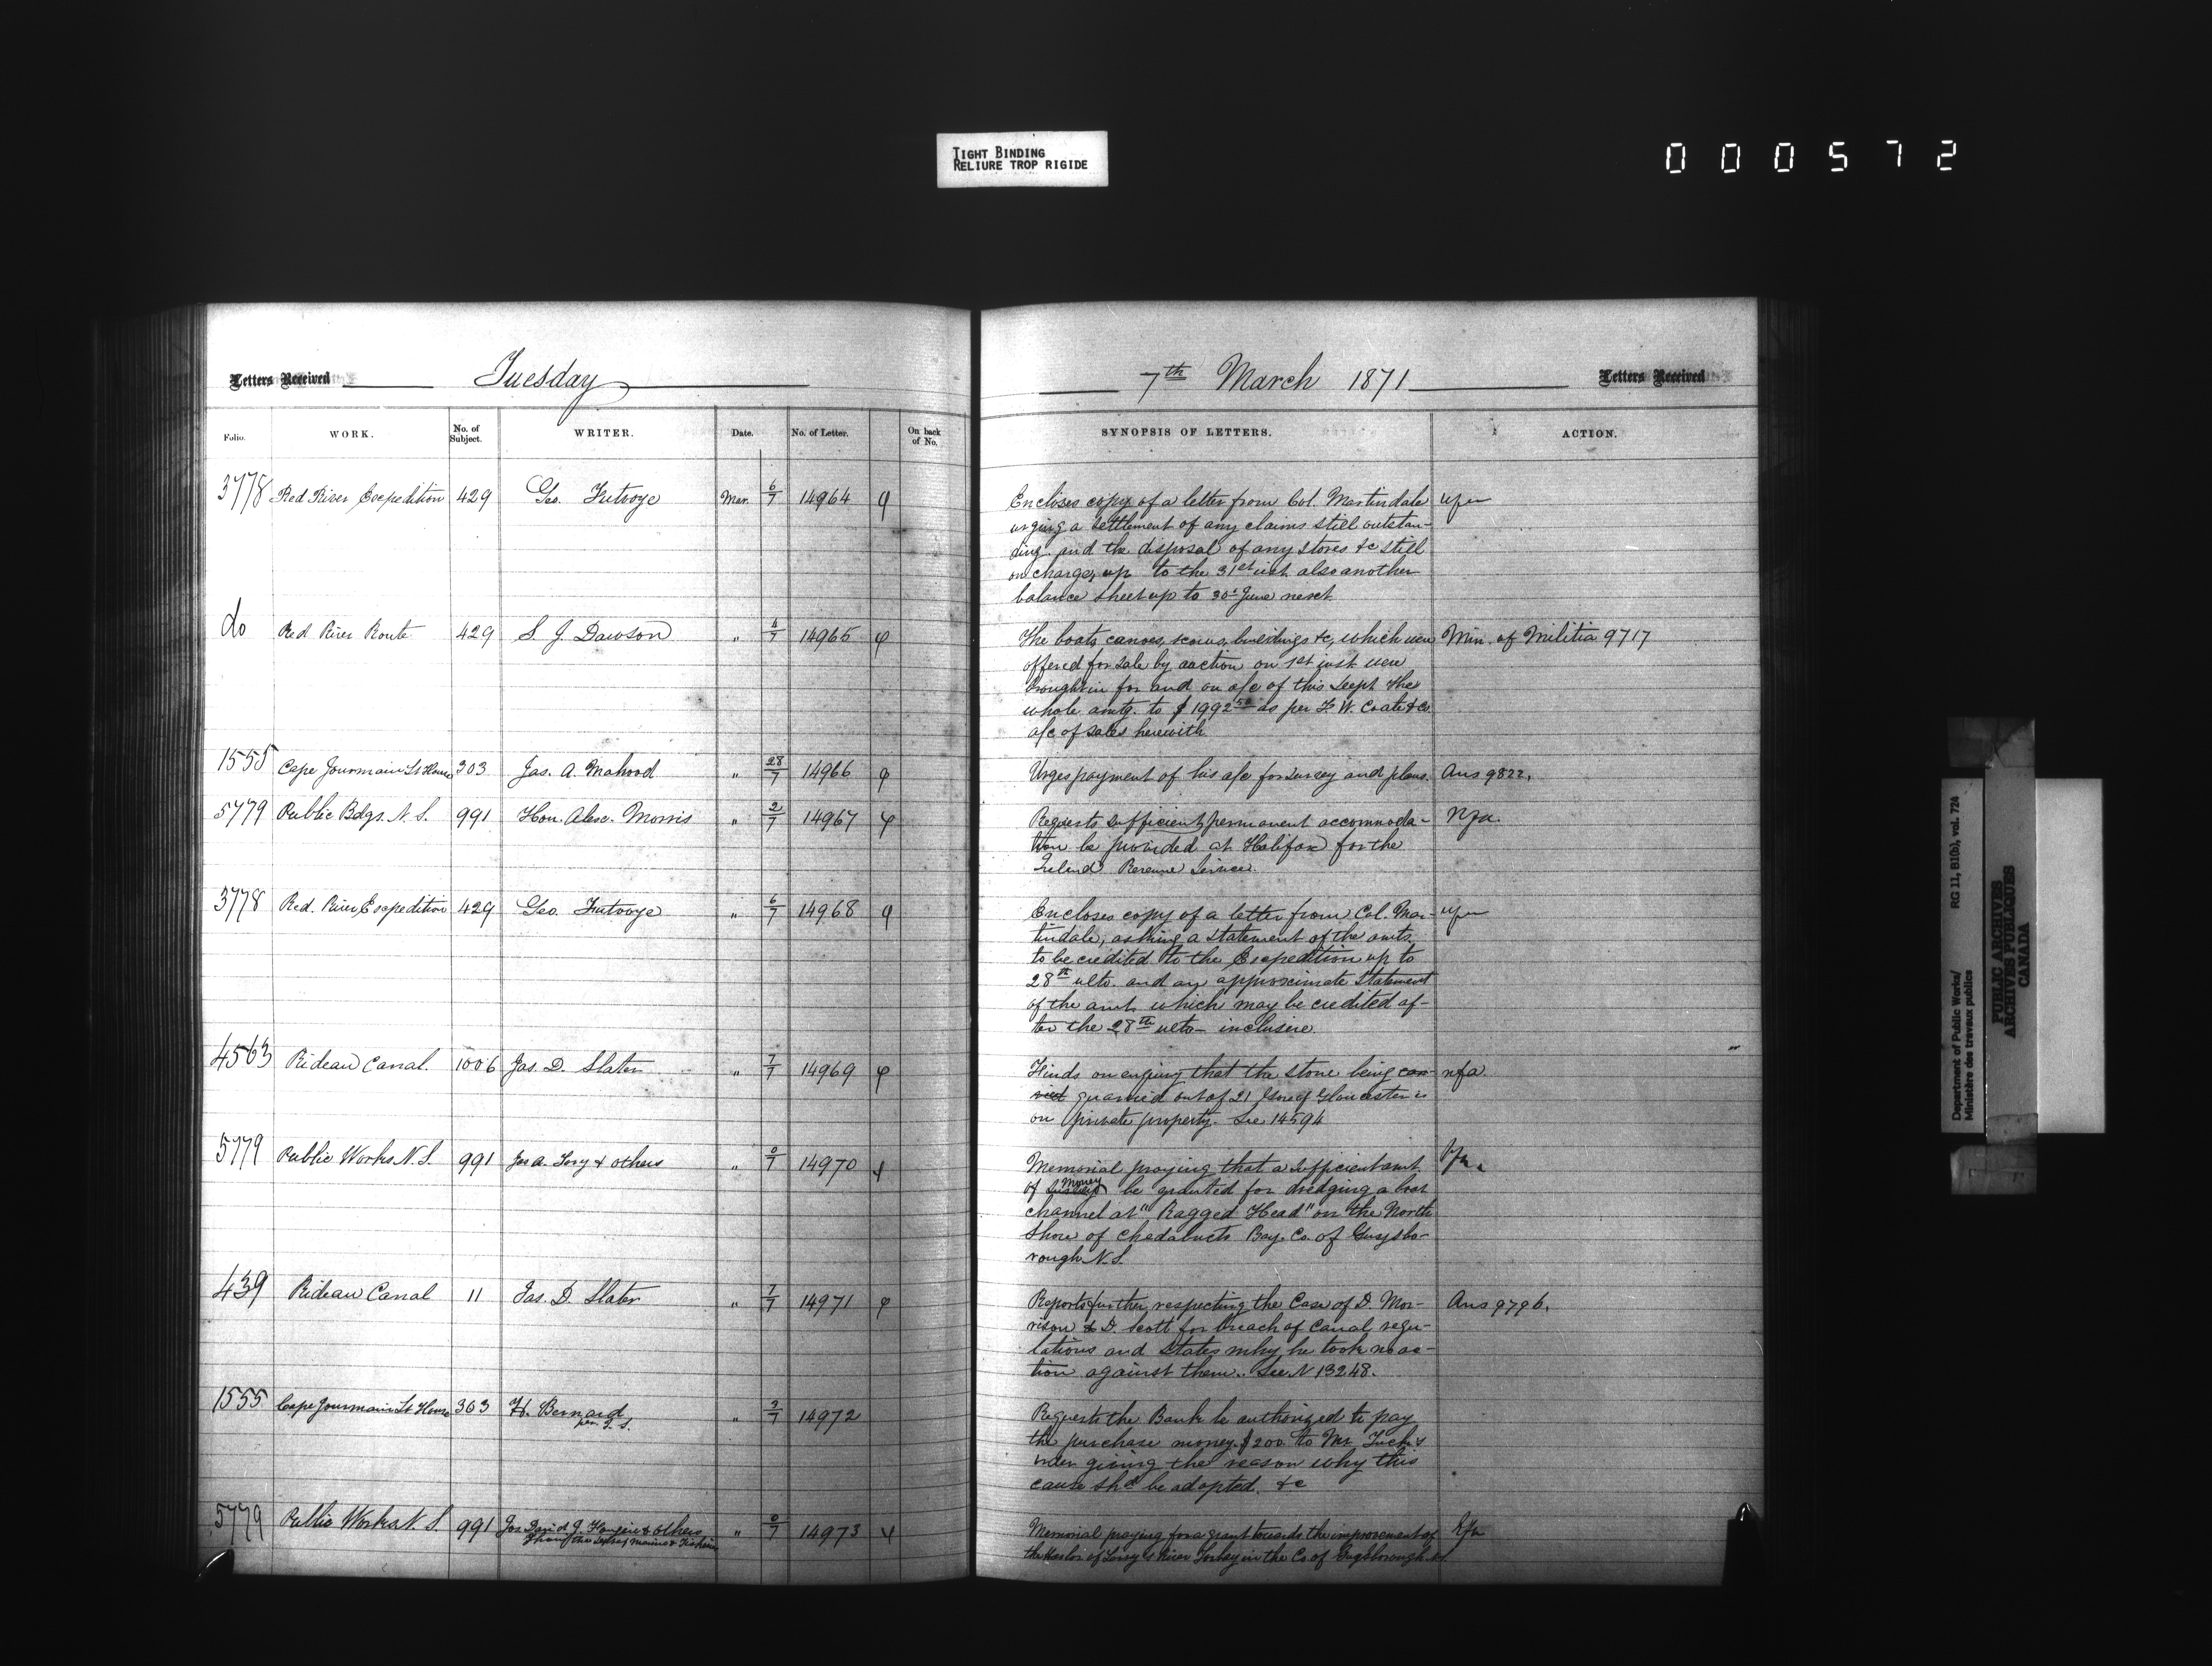 TIGHT BINDING
RELIURE TROP RIGIDE
000572
Letters Received Tuesday
7th March 1871 Letters Received
Folio. WORK. No. of Subject. WRITER. Date. No. of Letter. On back of No. SYNOPSIS OF LETTERS. ACTION.
3778 Red River Expedition 429 Geo. Futvoye Mar. 6/7 14964
Encloses copy of a letter from Col. Martindale
urging a settlement of any claims still outstan-
ding and the disposal of any stores &c still
on charge, up to the 31st inst. also another
balance sheet up to 30t June next
do Red River Route 429 S. J. Dawson " 4/7 14965
The boats canoes, scows, buildings &c, which were Min. of Militia 9717
offered for sale by auction on 1st inst were
brought in for and on a/c of this Dept. The
whole amtg. to $1992 50 as per F. W. Coate & Co
a/c of sales herewith
1555 Cape Jourmain Lt House 303 Jas. A. Mahood " 28/7 14966
Urges payment of his a/c for survey and plans. Ans 9822.
5779 Public Bdgs. N. S. 991 Hon. Alex. Morris " 2/7 14967
Requests sufficient permanent accommoda- Nfa.
tion be provided at Halifax for the
Inland Revenue Service.
3778 Red. River Expedition 429 Geo. Futvoye " 6/7 14968
Encloses copy of a letter from Col. Mar-
tindale, asking a statement of the amts.
to be credited to the Expedition up to
28th ulto. and an approximate statement
of the amt. which may be credited af-
ter the 28th ulto- inclusive.
4563 Rideau Canal. 1006 Jas. D. Slater " 7/7 14969
Finds on enquiry that the stone being nfa.
quarried out of 21 Gloucester is
on private property. See 14594
5779 Public Works N. S. 991 Jas A. Tory & others " 0/7 14970
Memorial praying that a sufficient amt.
of money be granted for dredging a boat
channel at "Ragged Head" on the North
Shore of Chedabucto Bay. Co. of Guysbo-
rough N. S.
439 Rideau Canal 11 Jas. D. Slater " 7/7 14971
Reports further respecting the Case of D. Mor- Ans 9796.
rison & D. Scott for breach of Canal regu-
lations and States why he took no ac-
tion against them. See N 13248.
1555 Cape Jourmain Lt House 303 H. Bernard " 3/7 14972
Requests the Bank be authorized to pay
the purchase money $200 to Mr.
giving the reason why this
cause shd be adopted. &c
5779 Public Works N. S. 991 & others " 0/7 14973
Memorial praying for a grant towards the improvement of
the Harbor of River Torbay in the Co of Guysborough
Department of Public Works/
Ministère des travaux publics
RG 11, B1(b), vol. 724
PUBLIC ARCHIVES
ARCHIVES PUBLIQUES
CANADA